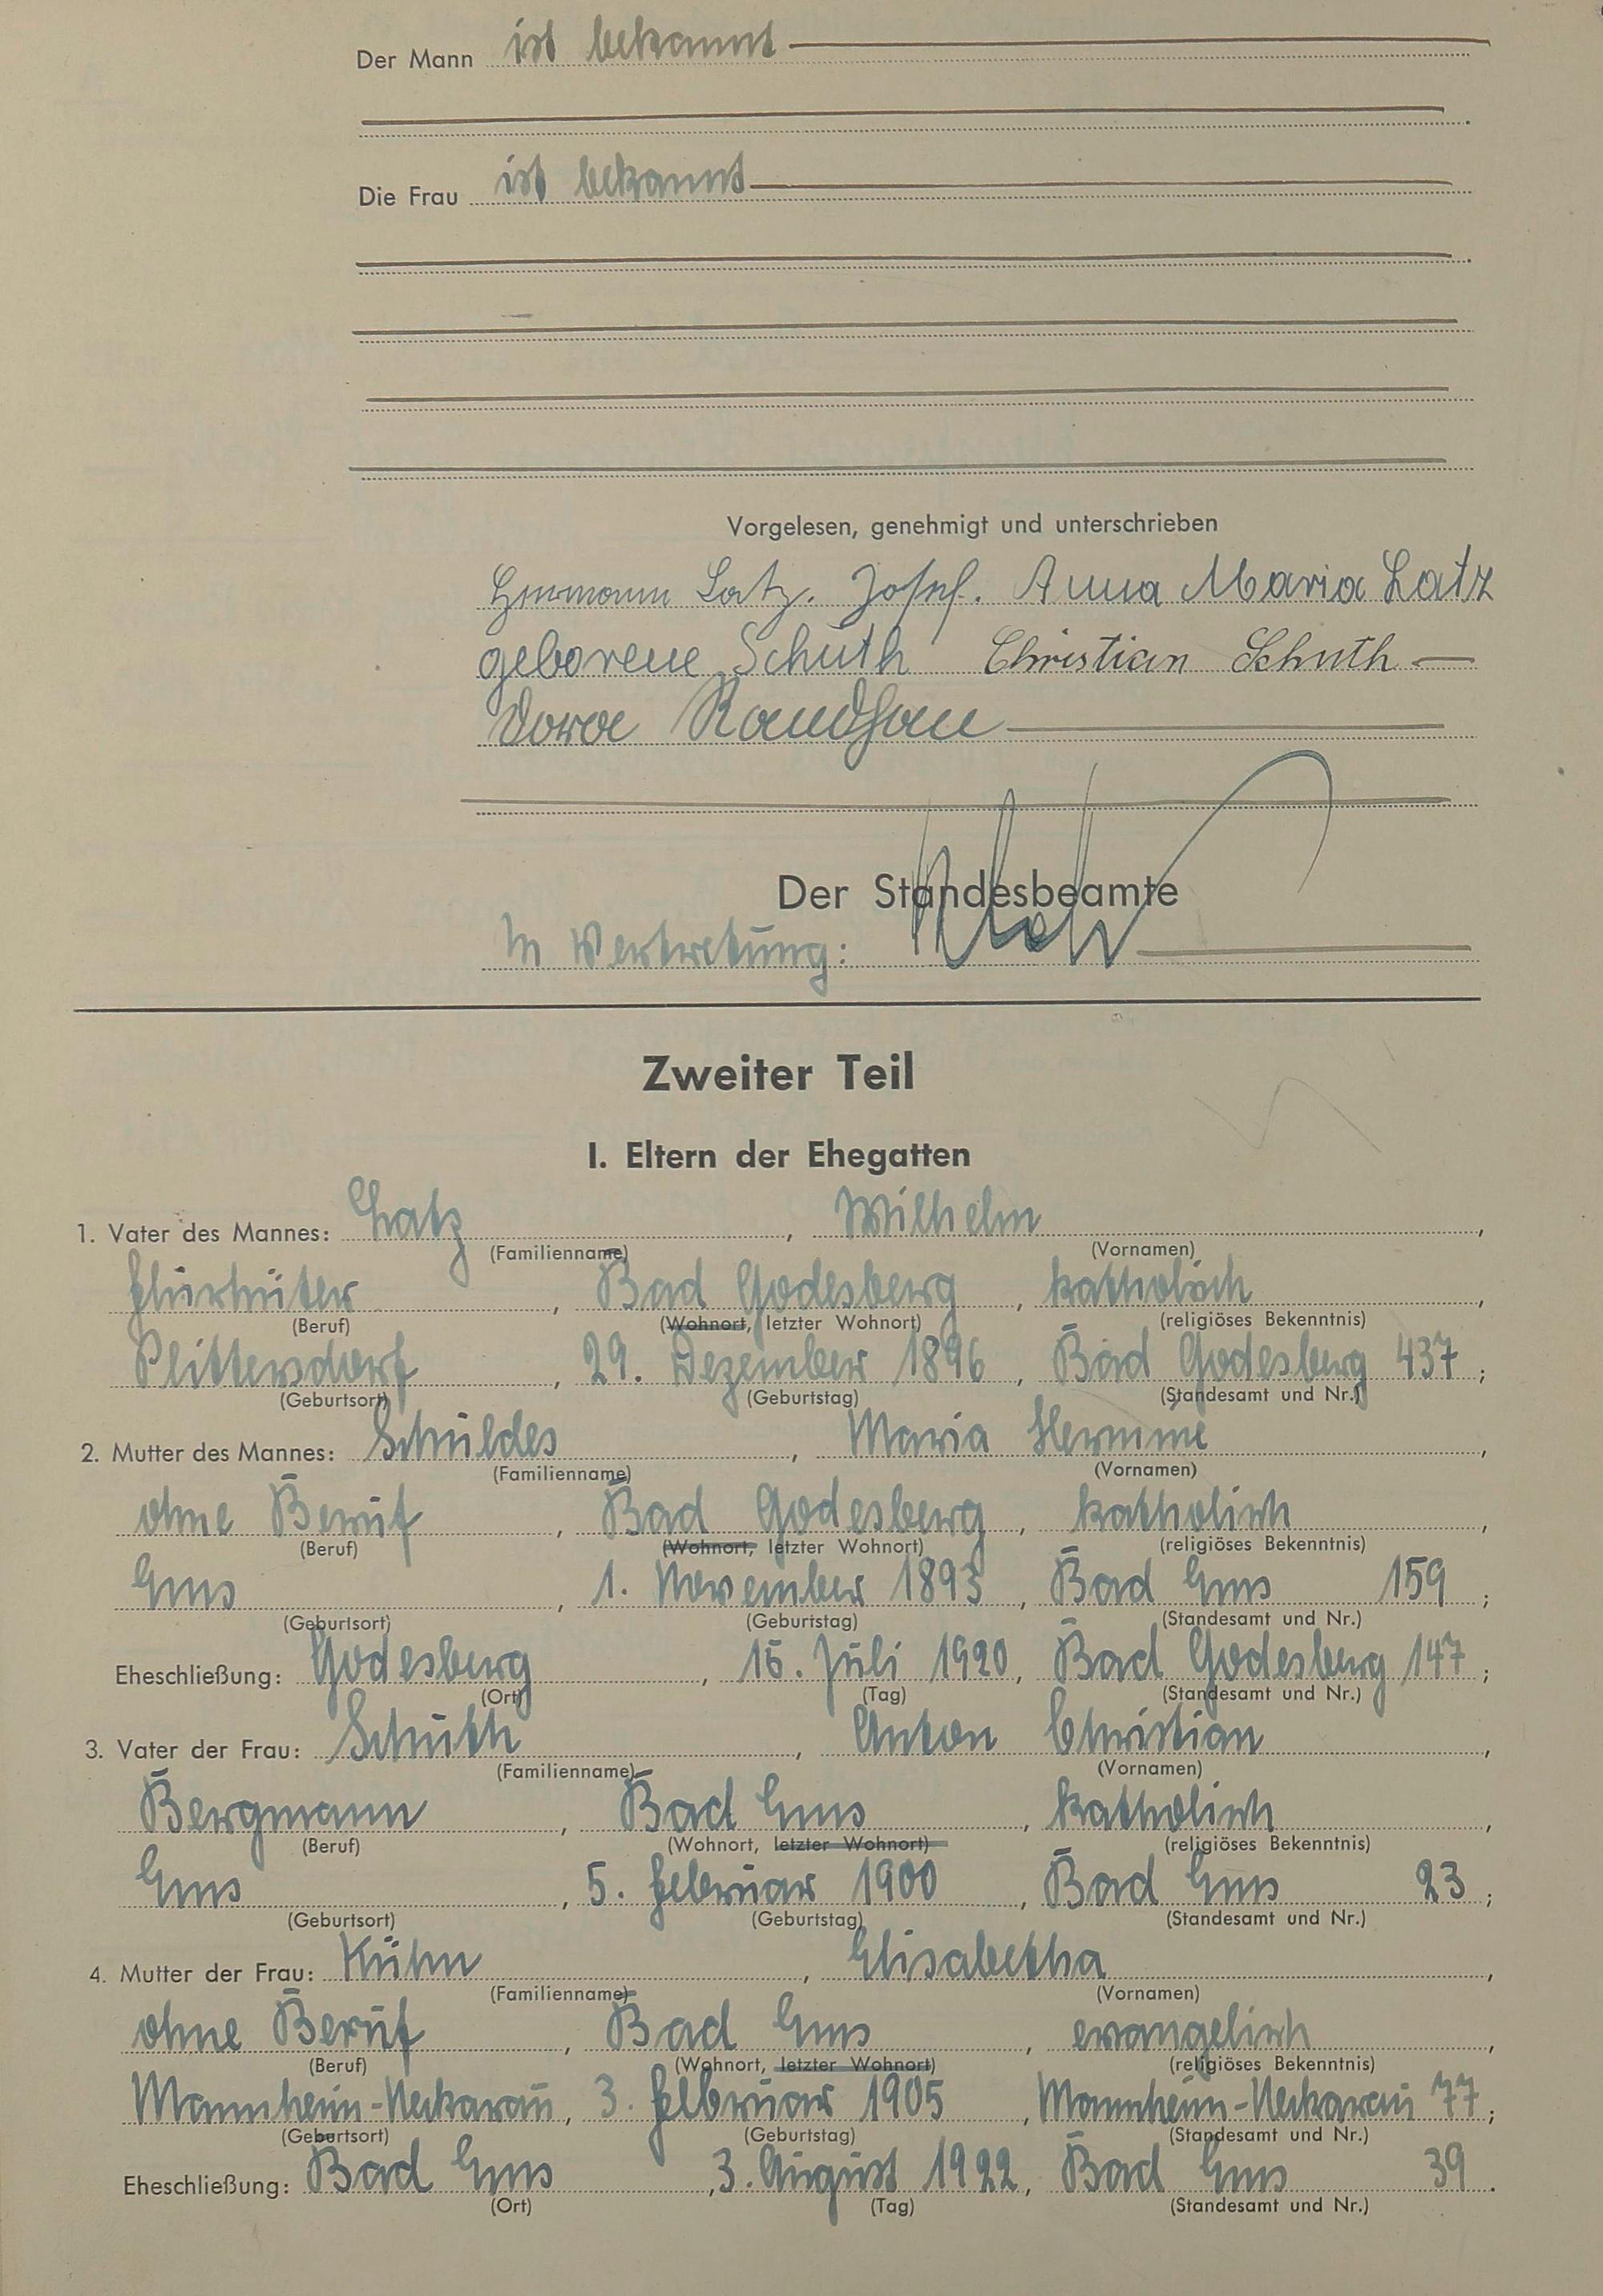 Der Mann ist bekannt
Die Frau ist bekannt
Vorgelesen, genehmigt und unterschrieben
Hermann Latz. Josef. Anna Maria Latz
geborene Schuth Christian Schuth
Dora
Der Standesbeamte
In Vertretung:
Zweiter Teil
I. Eltern der Ehegatten
1. Vater des Mannes: Latz, Wilhelm,
(Familienname) (Vornamen)
Flurhüter, Bad Godesberg, katholisch,
(Beruf) (Wohnort, letzter Wohnort) (religiöses Bekenntnis)
Plittersdorf, 29. Dezember 1896, Bad Godesberg 437;
(Geburtsort) (Geburtstag) (Standesamt und Nr.)
2. Mutter des Mannes: Schuldes, Maria Hermine,
(Familienname) (Vornamen)
ohne Beruf, Bad Godesberg, katholisch,
(Beruf) (Wohnort, letzter Wohnort) (religiöses Bekenntnis)
Ems, 1. November 1893, Bad Ems 159;
(Geburtsort) (Geburtstag) (Standesamt und Nr.)
Eheschließung: Godesberg, Juli 1920, Bad Godesberg 147;
(Ort) (Tag) (Standesamt und Nr.)
3. Vater der Frau: Schuth, Anton Christian,
(Familienname) (Vornamen)
Bergmann, Bad Ems, katholisch,
(Beruf) (Wohnort, letzter Wohnort) (religiöses Bekenntnis)
Ems, 5. Februar 1900, Bad Ems 23;
(Geburtsort) (Geburtstag) (Standesamt und Nr.)
4. Mutter der Frau: Kühn, Elisabetha,
(Familienname) (Vornamen)
ohne Beruf, Bad Ems, evangelisch,
(Beruf) (Wohnort, letzter Wohnort) (religiöses Bekenntnis)
Mannheim-Neckarau, 3. Februar 1905, Mannheim-Neckarau 77;
(Geburtsort) (Geburtstag) (Standesamt und Nr.)
Eheschließung: Bad Ems, 3. August 1922, Bad Ems 39.
(Ort) (Tag) (Standesamt und Nr.)